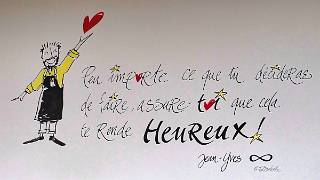 Peu importe ce que tu décideras
de faire, assure-toi que cela
te Rende HEUREUX!
Jean-Yves